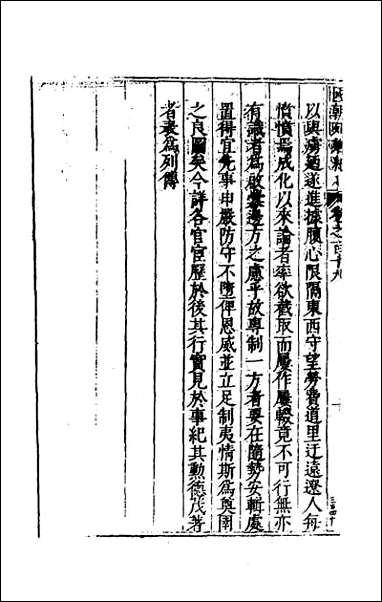 國朝 卷之一百十九
以與虜廼遂進據腹心限隔東西守望勞費道里迂遠遼人每
憤憤焉成化以來論者率欲截取而屢作屢輟竟不可行無亦
有識者為啟釁邊方之慮乎故專制一方者要在隨勢安輯處
置得宜先事申嚴防守不墮俾恩威並立足制夷情斯為輿圍
之良圖矣今詳各官宦歷於後其行實見於事紀其勳德茂著
者表為列傳